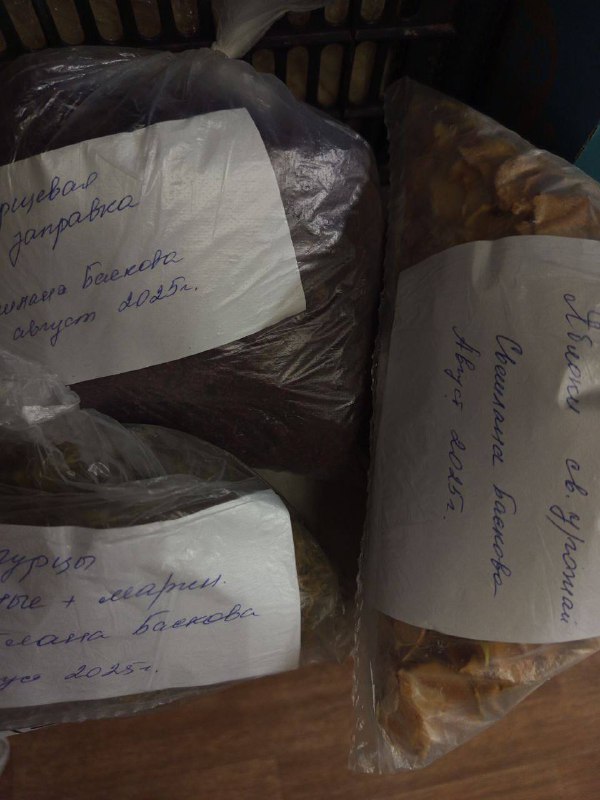 рщевая
заправка
Баскова
август 2025г.
гурцы
ные + марин.
лана Баскова
уст 2025г.
Яблоки св. урожай
Светлана Баскова
Август 2025г.